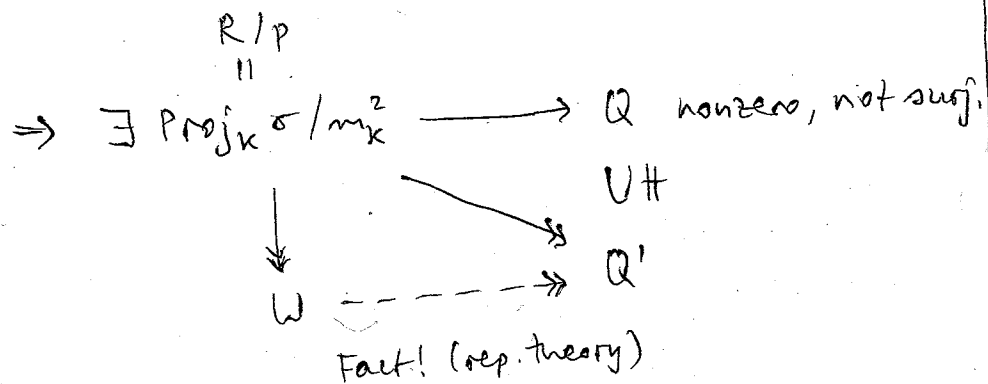 R/p
||
⇒ ∃ Proj_K σ/m_K^2 ⟶ Q nonzero, not surj.
∪∦
Q'
W ⇢ Q'
Fact! (rep. theory)